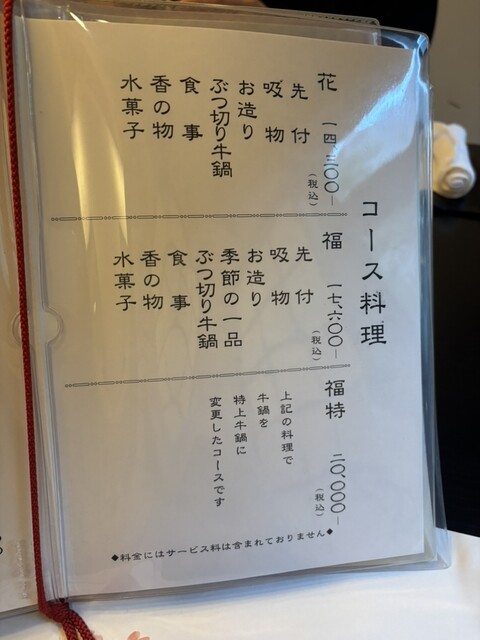 コース料理
花 一四、三〇〇—
（税込）
先付
吸物
お造り
ぶつ切り牛鍋
食事
香の物
水菓子
福 一七、六〇〇—
（税込）
先付
吸物
お造り
季節の一品
ぶつ切り牛鍋
食事
香の物
水菓子
福特 二〇、〇〇〇—
（税込）
上記の料理で
牛鍋を
特上牛鍋に
変更したコースです
◆料金にはサービス料は含まれておりません◆